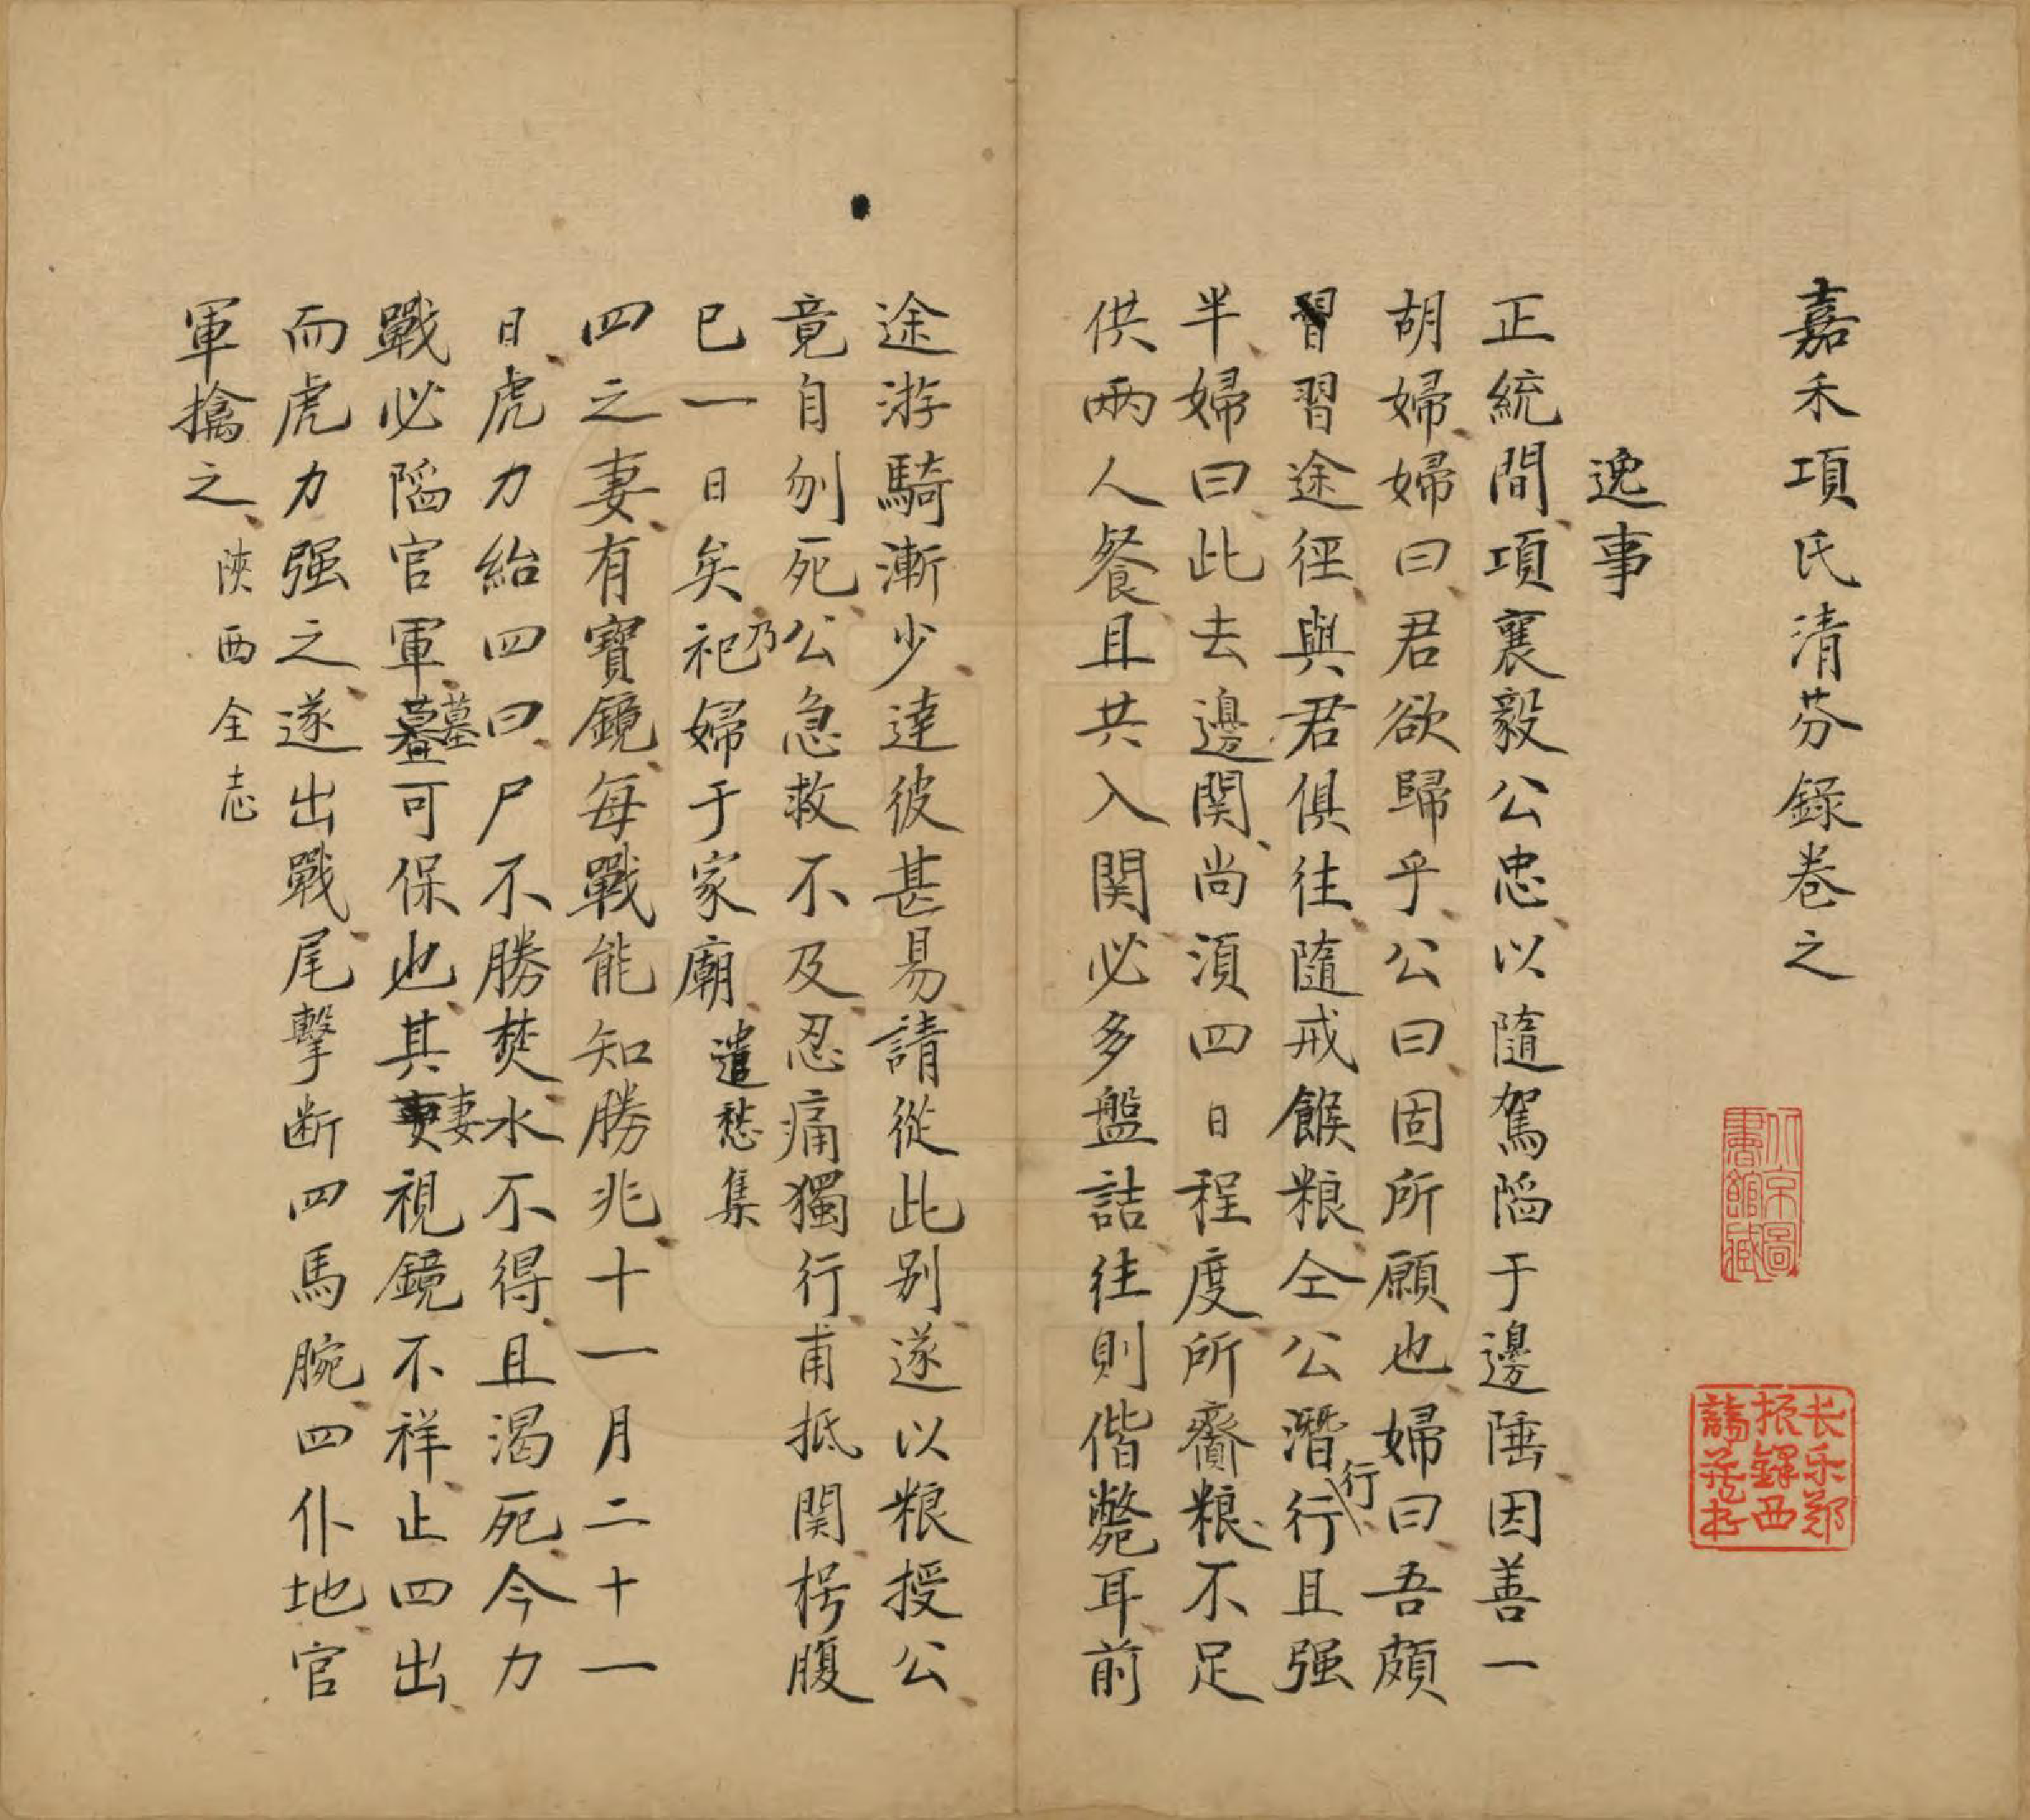 嘉禾項氏清芬錄卷之
逸事
正統間項襄毅公忠以隨駕陷于邊陲因善一
胡婦婦曰君欲歸乎公曰固所願也婦曰吾頗
習習途徑與君俱往隨戒餱粮仝公潛行行且强
半婦曰此去邊関尚湏四日程度所齎粮不足
供兩人餐且共入関必多盤詰往則偕斃耳前
途游騎漸少達彼甚易請從此别遂以粮授公
竟自刎死公急救不及忍痛獨行甫抵関枵腹
已一日矣乃祀婦于家廟 遣愁集
四之妻有寶鏡每戰能知勝兆十一月二十一
日虎力紿四曰尸不勝焚水不得且渴死今力
戰必陷官軍墓可保也其妻視鏡不祥止四出
而虎力强之遂出戰尾擊断四馬腕四仆地官
軍擒之 陝西全志
北京圖
書館藏
长乐郑
振鐸西
諦藏书